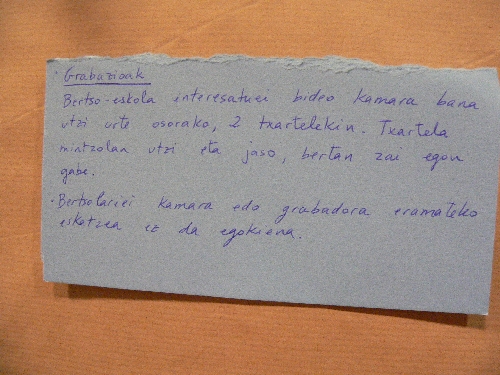 · Grabazioak
Bertso-eskola interesatuei bideo kamara bana
utzi urte osorako, 2 txartelekin. Txartela
mintzolan utzi eta jaso, bertan zai egon
gabe.
· Bertsolariei kamara edo grabadora eramateko
eskatzea ez da egokiena.